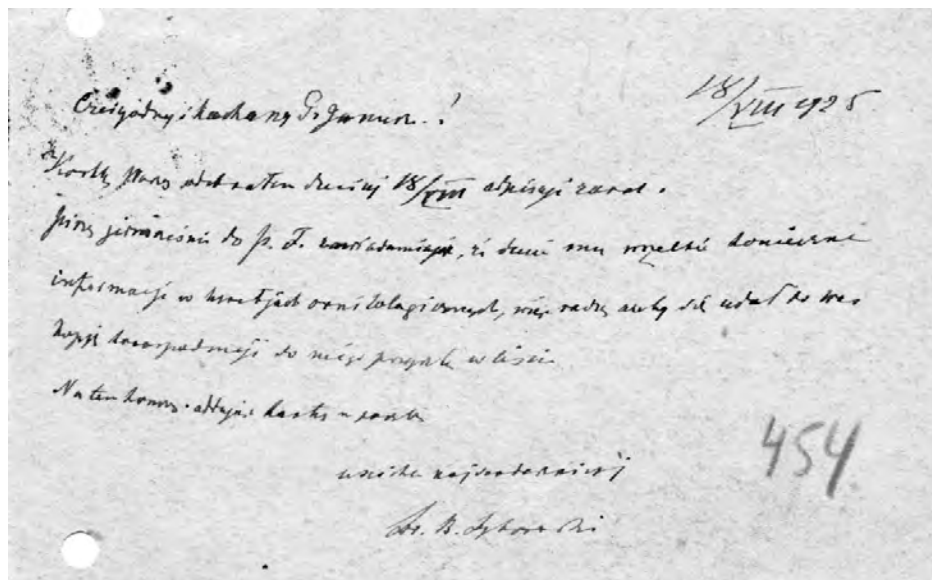 18/VIII 1925
Czcigodny i kochany P. Januszu!
Kartkę Pana odebrałem dzisiaj 18/VIII odpisuję zaraz.
Piszę jednocześnie do P. F. zawiadamiając, że dacie mu wszelkie konieczne
informacje w kwestjach ornitologicznych, więc radzę aby się udał do was
kopję korespondencji do niego w liście
Na ten koniec oddaję kartkę
uściski najserdeczniejsze
Dr. B. Dybowski
454